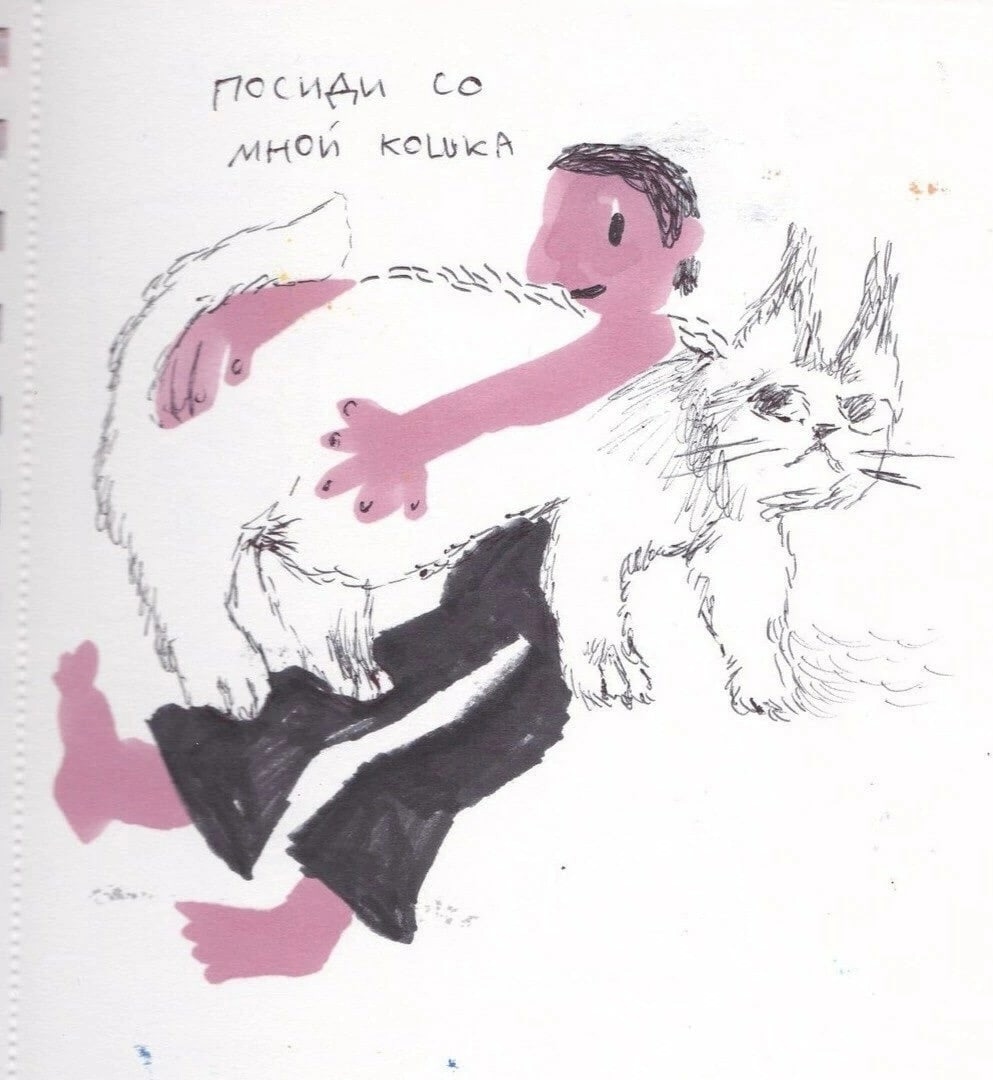 ПОСИДИ СО
МНОЙ КОШКА